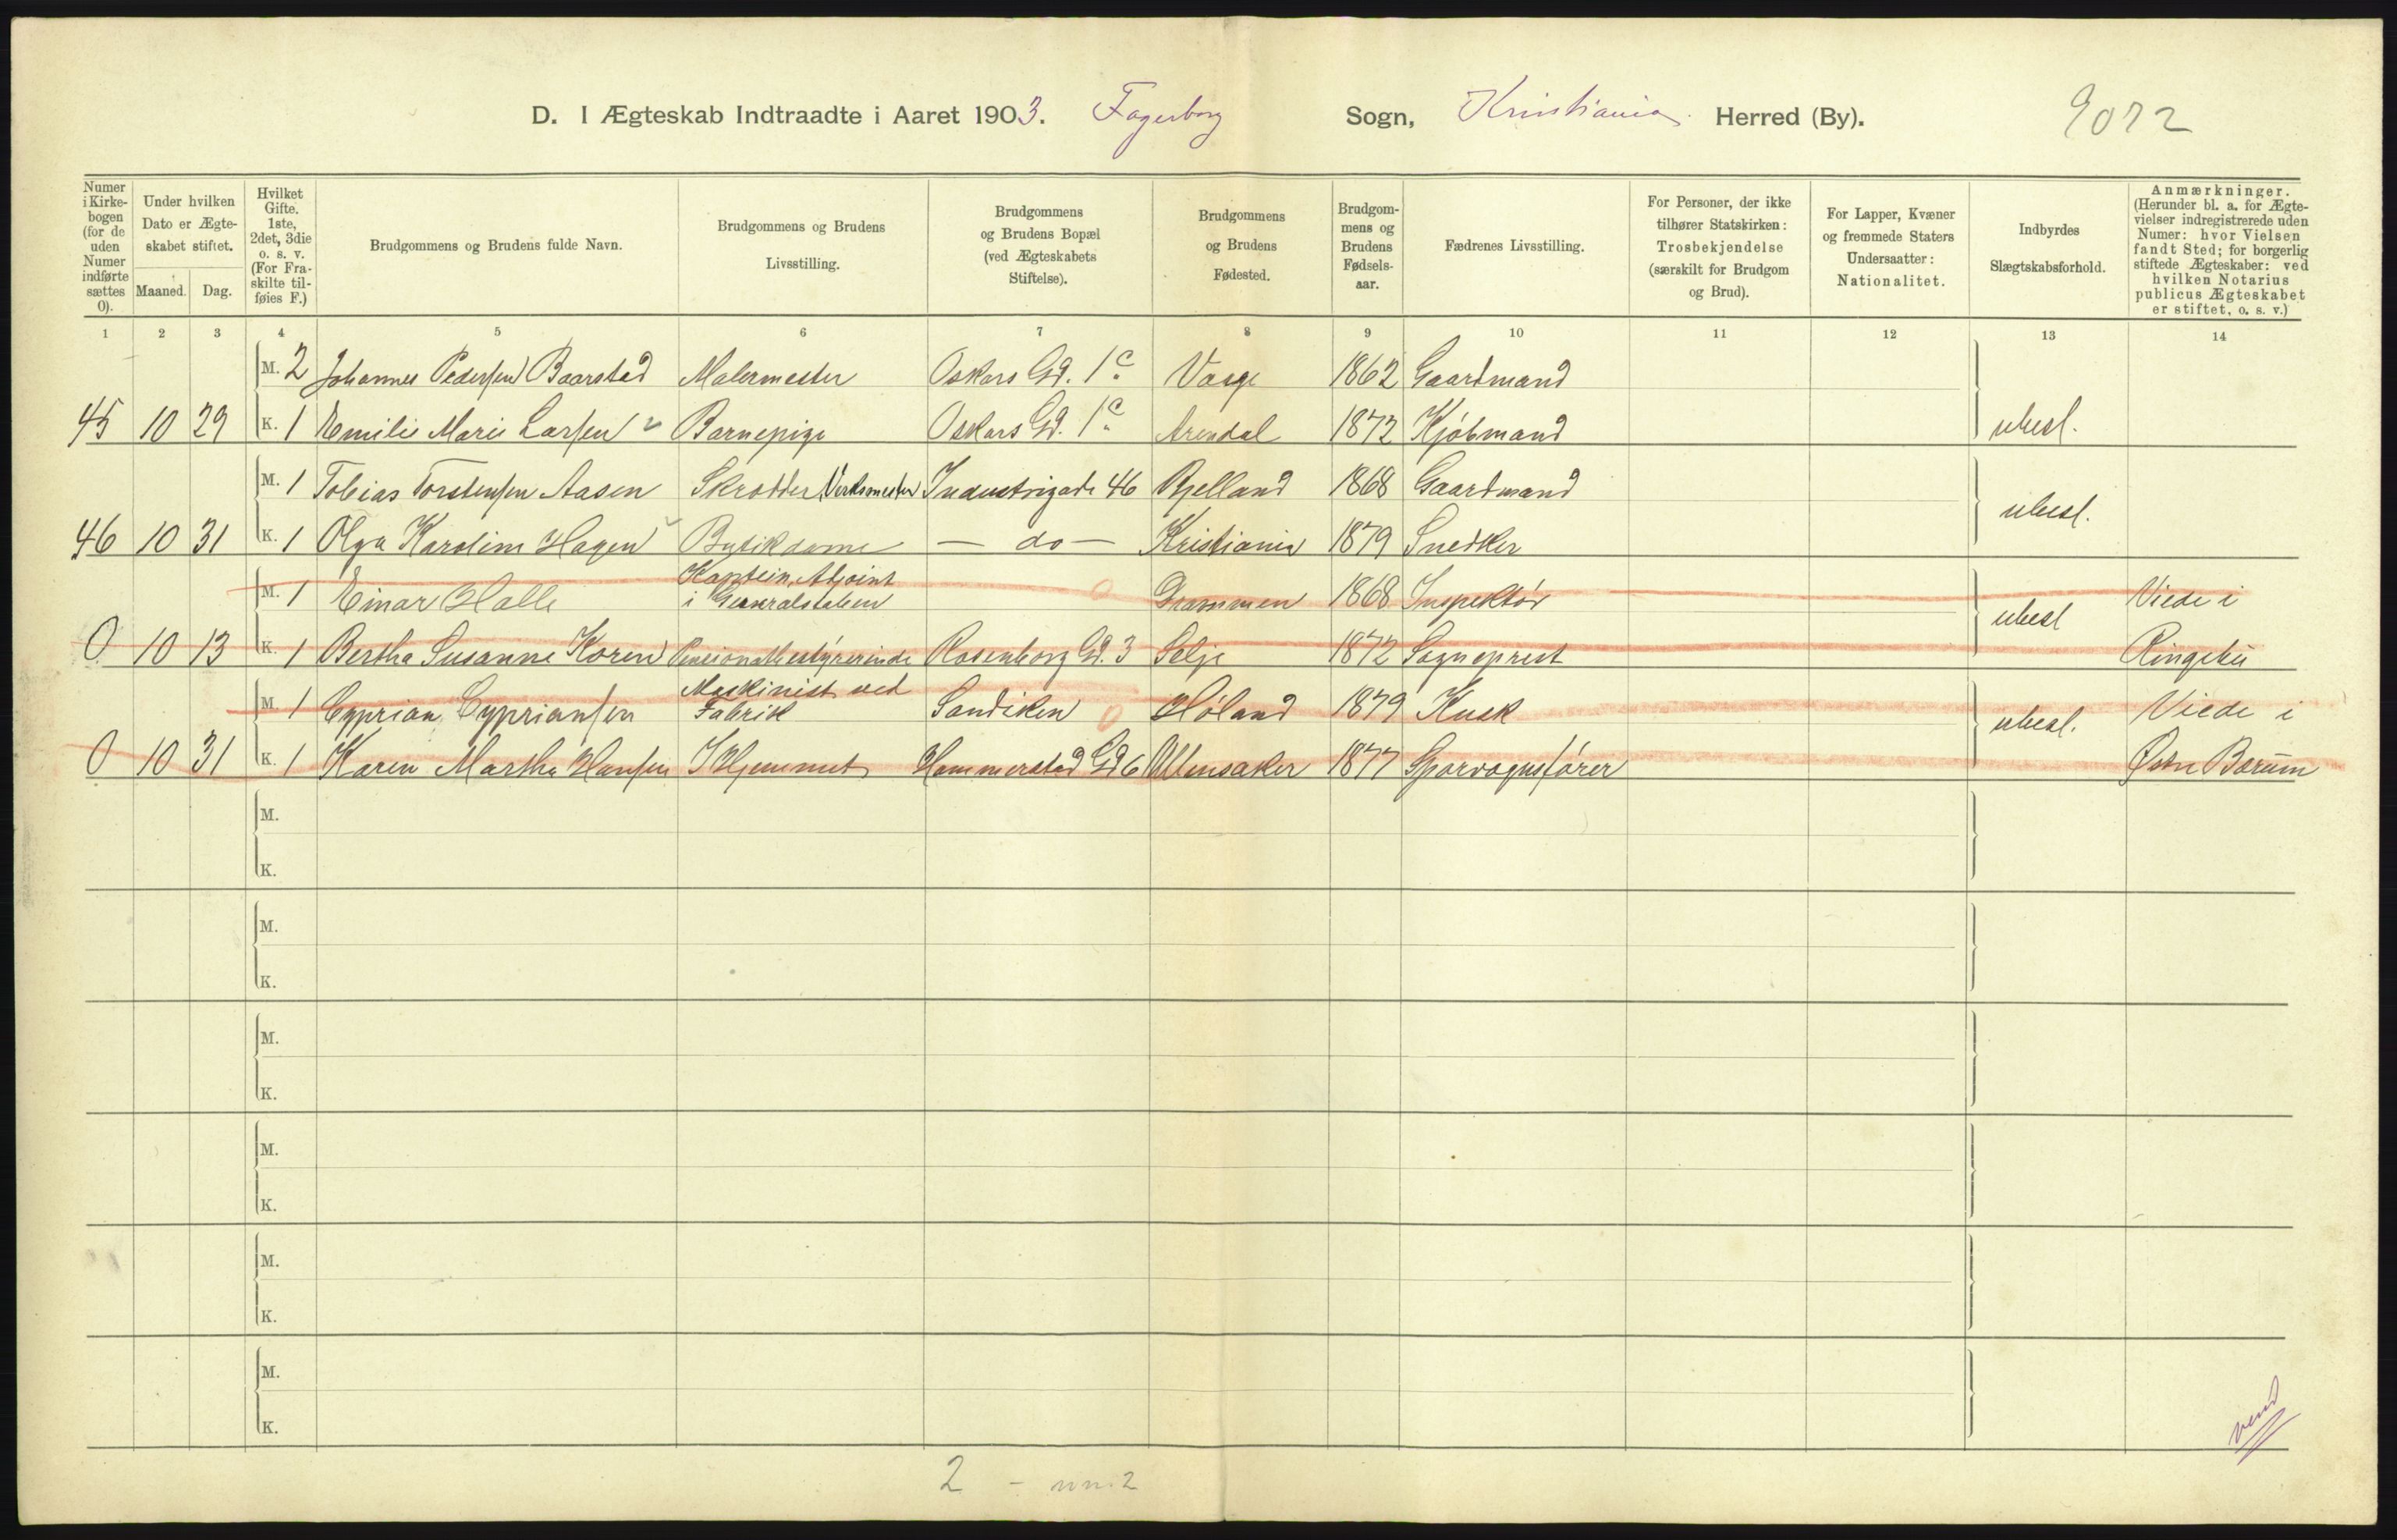 D. I Ægteskab Indtraadte i Aaret 1903. Fagerborg Sogn, Kristiania Herred (By). 9072
Numer i Kirkebogen (for de uden Numer indførte sættes 0).
Under hvilken Dato er Ægteskabet stiftet.
Maaned. Dag.
Hvilket Gifte. 1ste, 2det, 3die o. s. v. (For Fraskilte tilføies F.)
Brudgommens og Brudens fulde Navn.
Brudgommens og Brudens Livsstilling.
Brudgommens og Brudens Bopæl (ved Ægteskabets Stiftelse).
Brudgommens og Brudens Fødested.
Brudgommens og Brudens Fødselsaar.
Fædrenes Livsstilling.
For Personer, der ikke tilhører Statskirken: Trosbekjendelse (særskilt for Brudgom og Brud).
For Lapper, Kvæner og fremmede Staters Undersaatter: Nationalitet.
Indbyrdes Slægtskabsforhold.
Anmærkninger. (Herunder bl. a. for Ægtevielser indregistrerede uden Numer: hvor Vielsen fandt Sted; for borgerlig stiftede Ægteskaber: ved hvilken Notarius publicus Ægteskabet er stiftet, o. s. v.)
1 2 3 4 5 6 7 8 9 10 11 12 13 14
M. 2 Johannes Pedersen Baarstad Malermester Oskars Gd. 1c Vaage 1862 Gaardmand
45 10 29 K. 1 Emilie Marie Larsen Barnepige Oskars Gd. 1c Arendal 1872 Kjøbmand ubesl.
M. 1 Tobias Torstensen Aasen Skrædder Verksmester Industrigade 46 Bjelland 1868 Gaardmand
46 10 31 K. 1 Olga Karoline Hagen Butikdame — do — Kristiania 1879 Snedker ubesl.
M. 1 Einar Halle Kaptein, Adjoint i Generalstaben 0 Drammen 1868 Inspektør Viede i
0 10 13 K. 1 Bertha Susanne Koren Pensionatbestyrerinde Rosenborg Gd. 3 Selje 1872 Sogneprest ubesl Ringebu
M. 1 Cyprian Cypriansen Maskinist ved Fabrik Sandviken 0 Høland 1879 Kusk Viede i
0 10 31 K. 1 Karen Martha Hansen I Hjemmet Hammerstad Gd 6 Ullensaker 1877 Sporvognsfører ubesl. Østre Bærum
M.
K.
M.
K.
M.
K.
M.
K.
M.
K.
M.
K.
vend
2 –